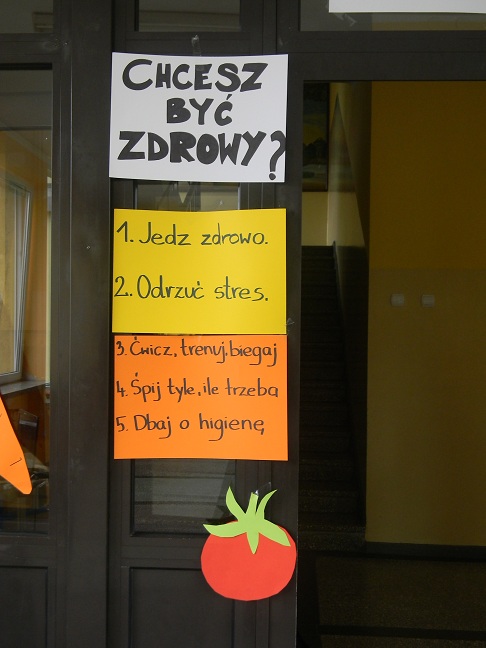 CHCESZ
BYĆ
ZDROWY?
1. Jedz zdrowo.
2. Odrzuć stres.
3. Ćwicz, trenuj, biegaj
4. Śpij tyle, ile trzeba
5. Dbaj o higienę